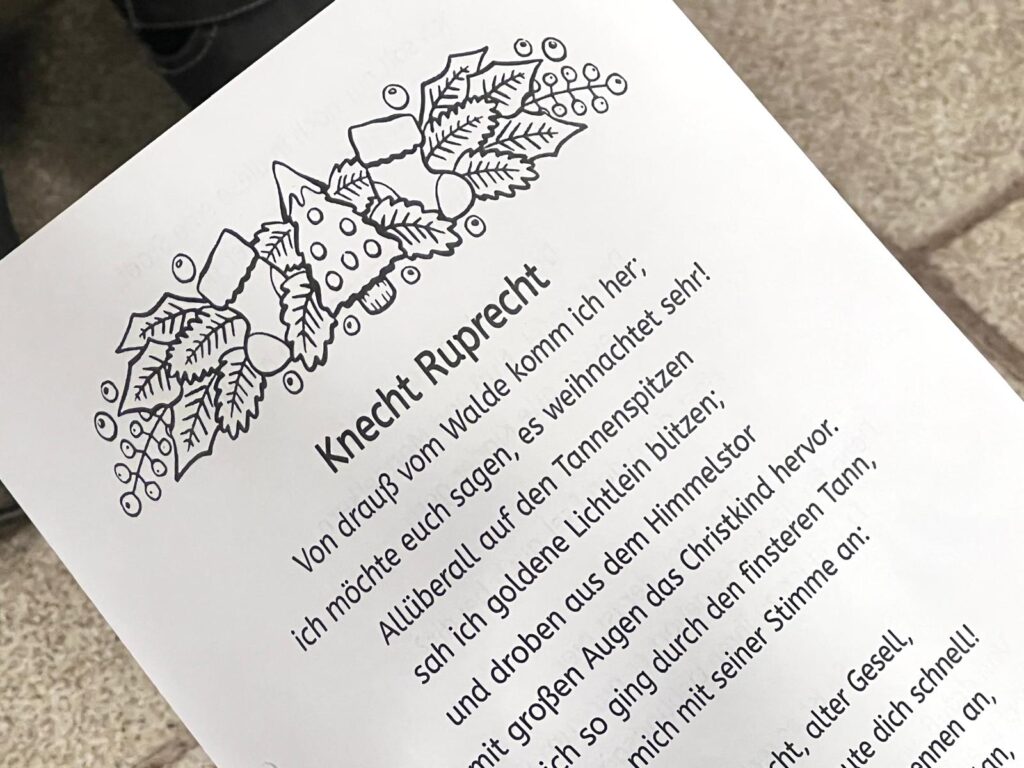 Knecht Ruprecht
Von drauß vom Walde komm ich her;
ich möchte euch sagen, es weihnachtet sehr!
Allüberall auf den Tannenspitzen
sah ich goldene Lichtlein blitzen;
und droben aus dem Himmelstor
mit großen Augen das Christkind hervor.
ich so ging durch den finsteren Tann,
mich mit seiner Stimme an:
alter Gesell,
dich schnell!
an,
an,